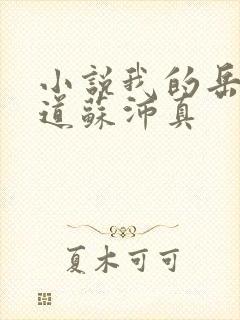 小説我的岳
道蘇沛真
夏木可可